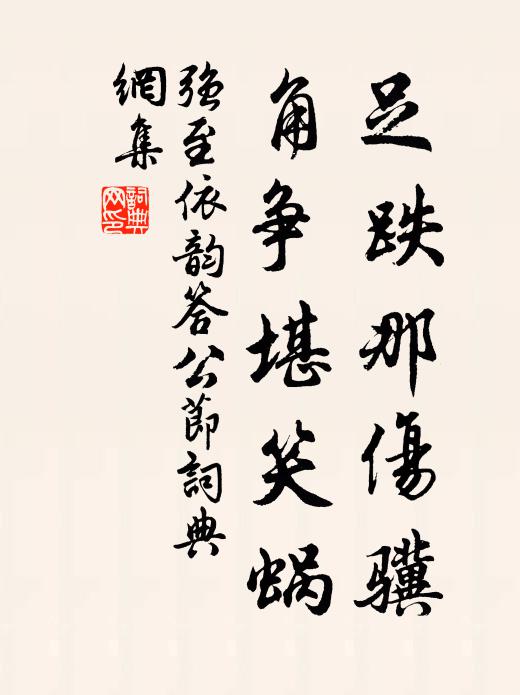 足跌那傷驥
角争堪笑蝸
強至依韵答公節詞典
網集
詞典
网印